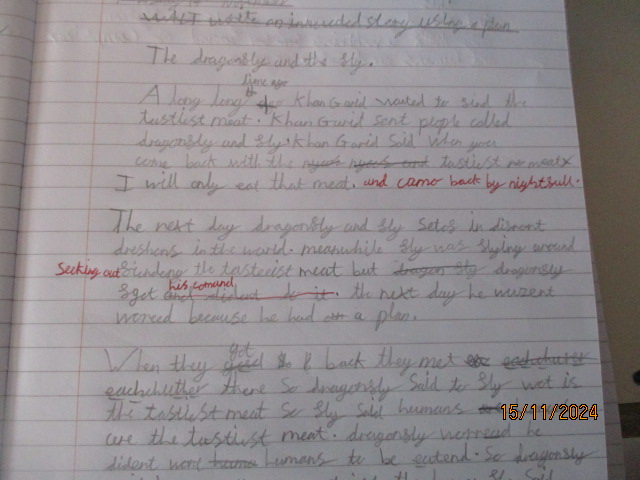 write an invented story using a plan.
The dragonfly and the fly.
time ago
A long long Khan Garid wanted to find the
tastiest meat. Khan Garid sent people called
dragonfly and fly. Khan Garid said when you
come back with the tastiest meat
I will only eat that meat. and came back by nightfull.
The next day dragonfly and fly setes in disrent
dreshens in the world. meanwhile fly was flying around
Seeking out the tasteiest meat but dragonfly
fget his comand. the next day he wuzent
worred because he had a plan.
got
When they back they met
eachuther there So dragonfly Said to fly wot is
the tastiest meat So fly said humans
are the tastiest meat. dragonfly worread he
dident wont humans to be eatend. So dragonfly
15/11/2024